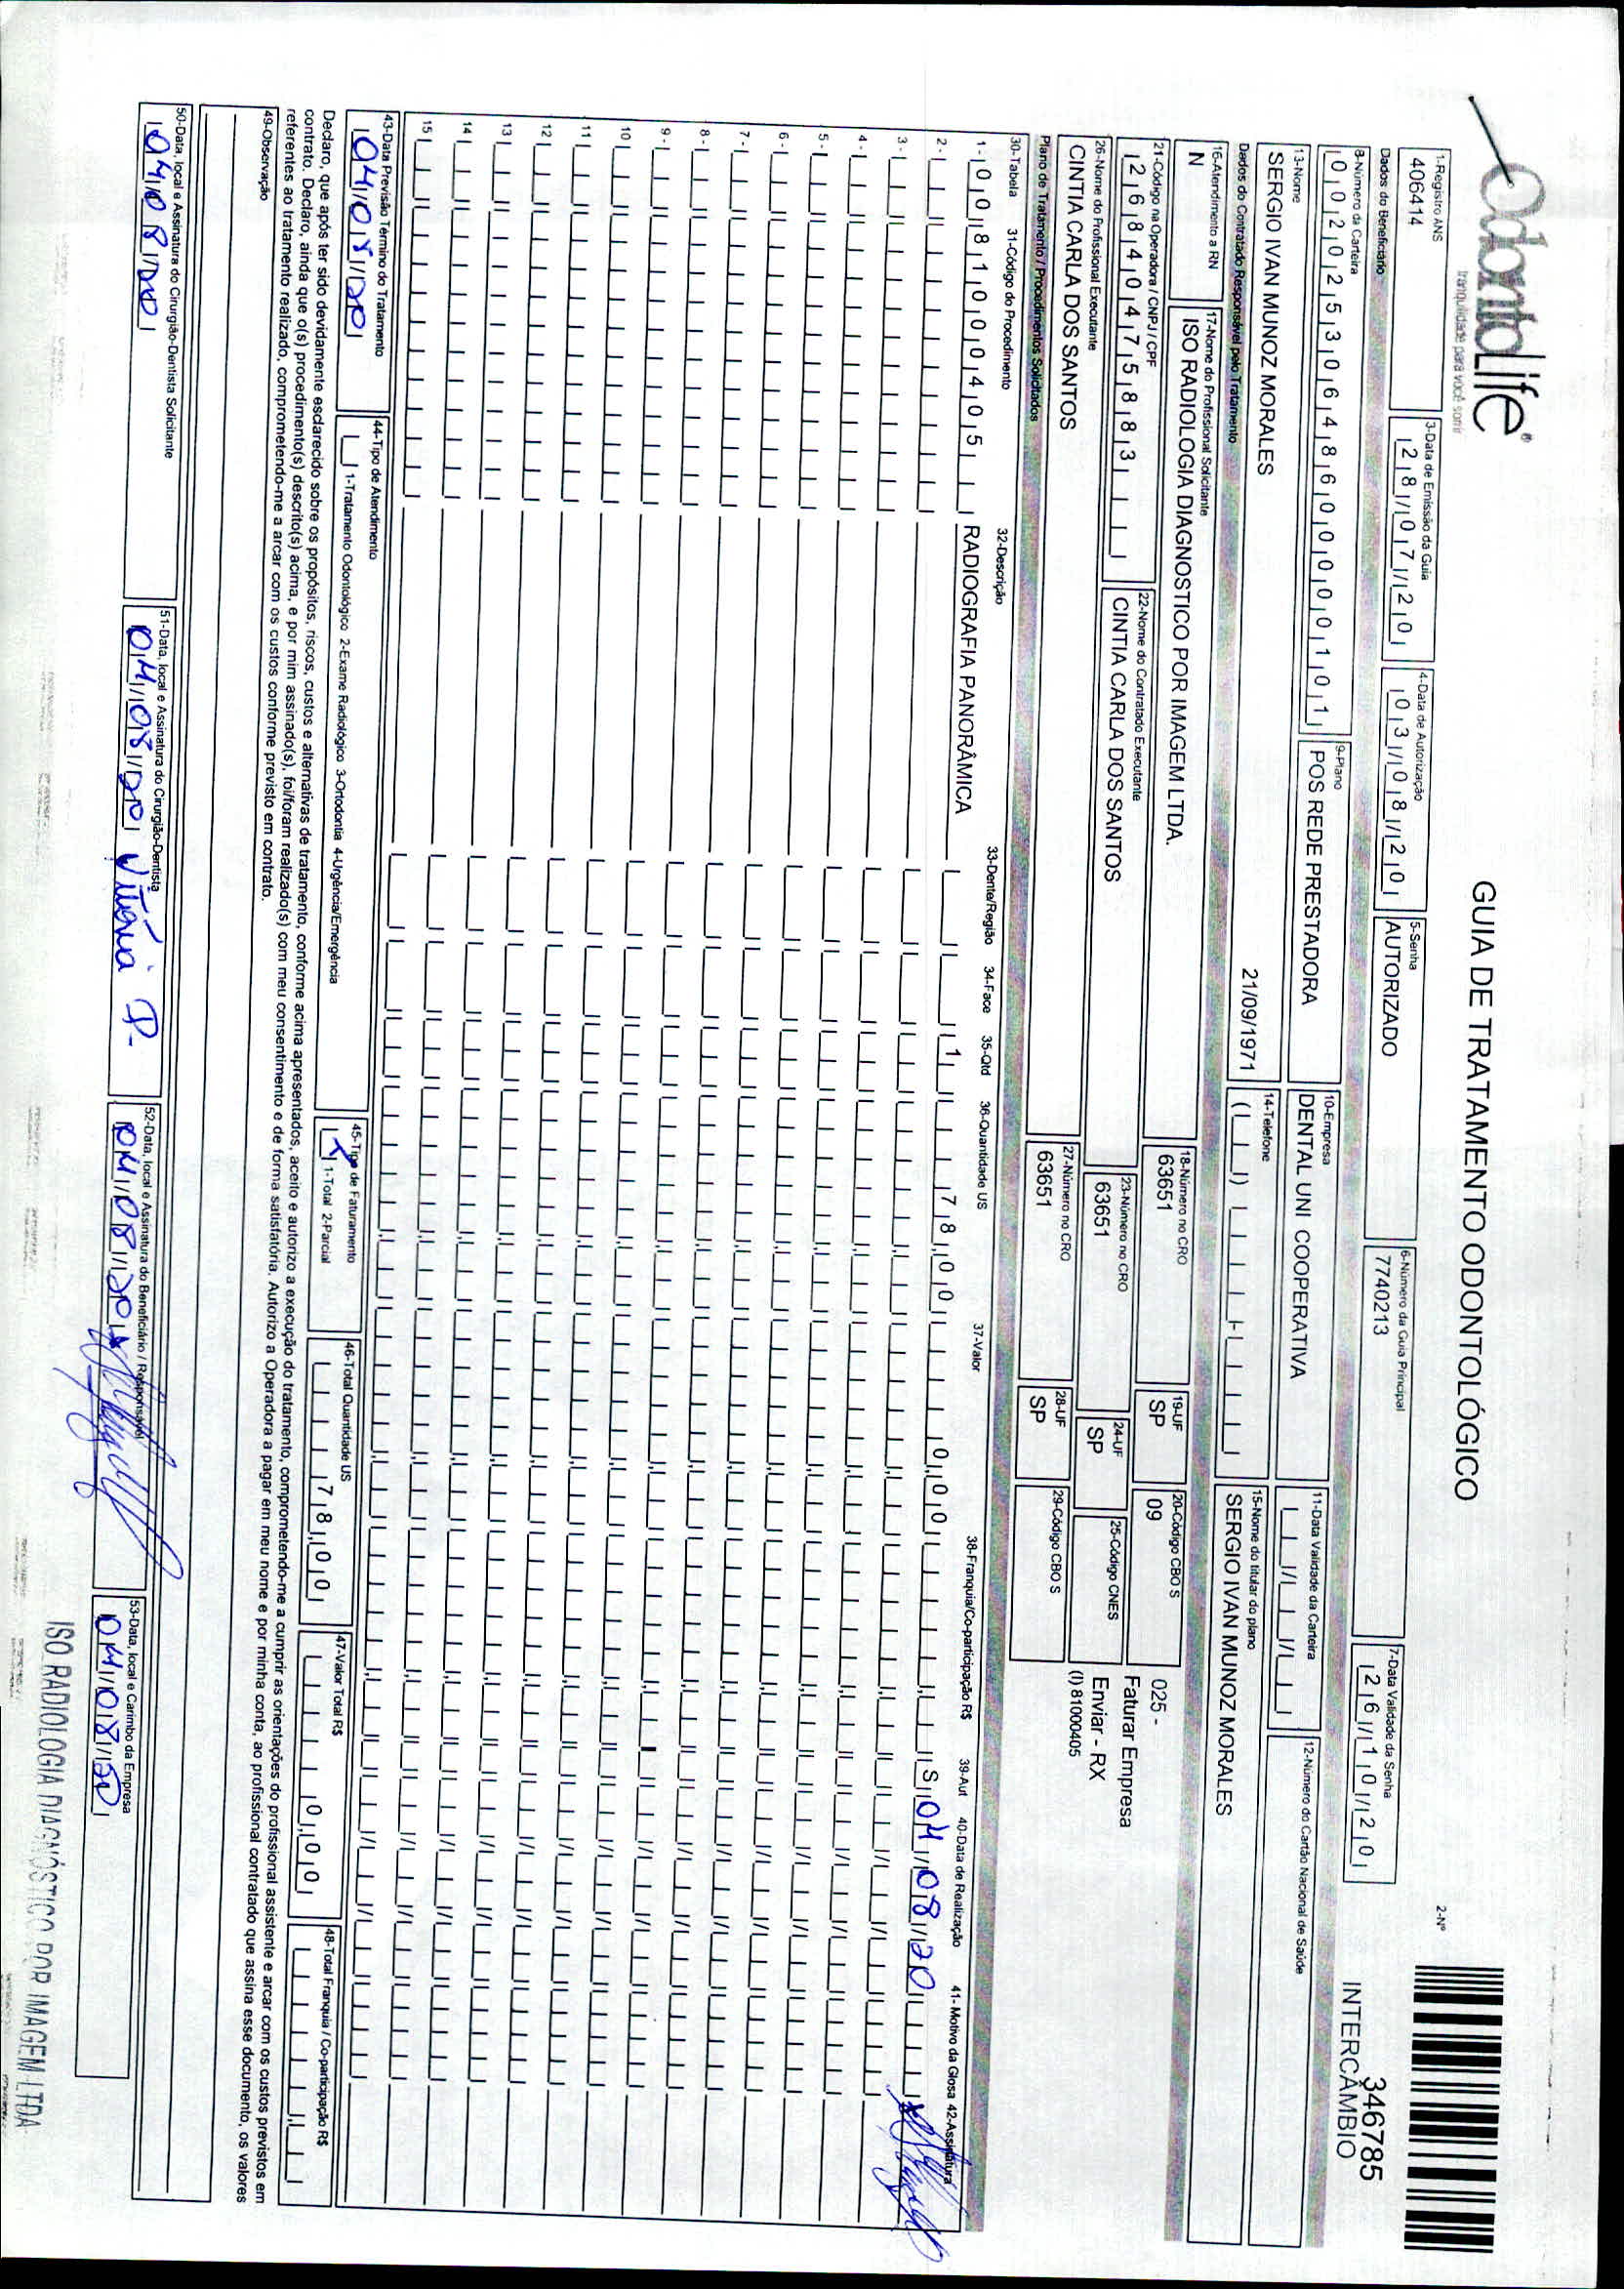 OdontoLife®
tranquilidade para você sorrir
GUIA DE TRATAMENTO ODONTOLÓGICO
2-Nº
346785
INTERCÂMBIO
1-Registro ANS
406414
3-Data de Emissão da Guia
28/07/20
4-Data de Autorização
03/08/20
5-Senha
AUTORIZADO
6-Número da Guia Principal
7740213
7-Data Validade da Senha
26/10/20
Dados do Beneficiário
8-Número da Carteira
00202530648600000101
9-Plano
POS REDE PRESTADORA
10-Empresa
DENTAL UNI COOPERATIVA
11-Data Validade da Carteira
12-Número do Cartão Nacional de Saúde
13-Nome
SERGIO IVAN MUNOZ MORALES
21/09/1971
14-Telefone
15-Nome do titular do plano
SERGIO IVAN MUNOZ MORALES
Dados do Contratado Responsável pelo Tratamento
16-Atendimento a RN
N
17-Nome do Profissional Solicitante
ISO RADIOLOGIA DIAGNOSTICO POR IMAGEM LTDA.
18-Número no CRO
63651
19-UF
SP
20-Código CBO S
09
025 -
Faturar Empresa
Enviar - RX
(I) 81000405
21-Código na Operadora / CNPJ / CPF
26840475883
22-Nome do Contratado Executante
CINTIA CARLA DOS SANTOS
23-Número no CRO
63651
24-UF
SP
25-Código CNES
26-Nome do Profissional Executante
CINTIA CARLA DOS SANTOS
27-Número no CRO
63651
28-UF
SP
29-Código CBO S
Plano de Tratamento / Procedimentos Solicitados
30-Tabela 31-Código do Procedimento 32-Descrição 33-Dente/Região 34-Face 35-Qtd 36-Quantidade US 37-Valor 38-Franquia/Co-participação R$ 39-Aut 40-Data de Realização 41- Motivo da Glosa 42-Assinatura
1- 00 81000405 RADIOGRAFIA PANORÂMICA 1 78,00 0,00 S 04/08/20
2-
3-
4-
5-
6-
7-
8-
9-
10
11
12
13
14
15
43-Data Previsão Término do Tratamento
04/08/20
44-Tipo de Atendimento
1-Tratamento Odontológico 2-Exame Radiológico 3-Ortodontia 4-Urgência/Emergência
45-Tipo de Faturamento
1-Total 2-Parcial
46-Total Quantidade US
78,00
47-Valor Total R$
0,00
48-Total Franquia / Co-participação R$
Declaro, que após ter sido devidamente esclarecido sobre os propósitos, riscos, custos e alternativas de tratamento, conforme acima apresentados, aceito e autorizo a execução do tratamento, comprometendo-me a cumprir as orientações do profissional assistente e arcar com os custos previstos em
contrato. Declaro, ainda que o(s) procedimento(s) descrito(s) acima, e por mim assinado(s), foi/foram realizado(s) com meu consentimento e de forma satisfatória. Autorizo a Operadora a pagar em meu nome e por minha conta, ao profissional contratado que assina esse documento, os valores
referentes ao tratamento realizado, comprometendo-me a arcar com os custos conforme previsto em contrato.
49-Observação
50-Data, local e Assinatura do Cirurgião-Dentista Solicitante
04/08/20
51-Data, local e Assinatura do Cirurgião-Dentista
04/08/20 Vitória P.
52-Data, local e Assinatura do Beneficiário / Responsável
04/08/20
53-Data, local e Carimbo da Empresa
04/08/20
ISO RADIOLOGIA DIAGNÓSTICO POR IMAGEM LTDA